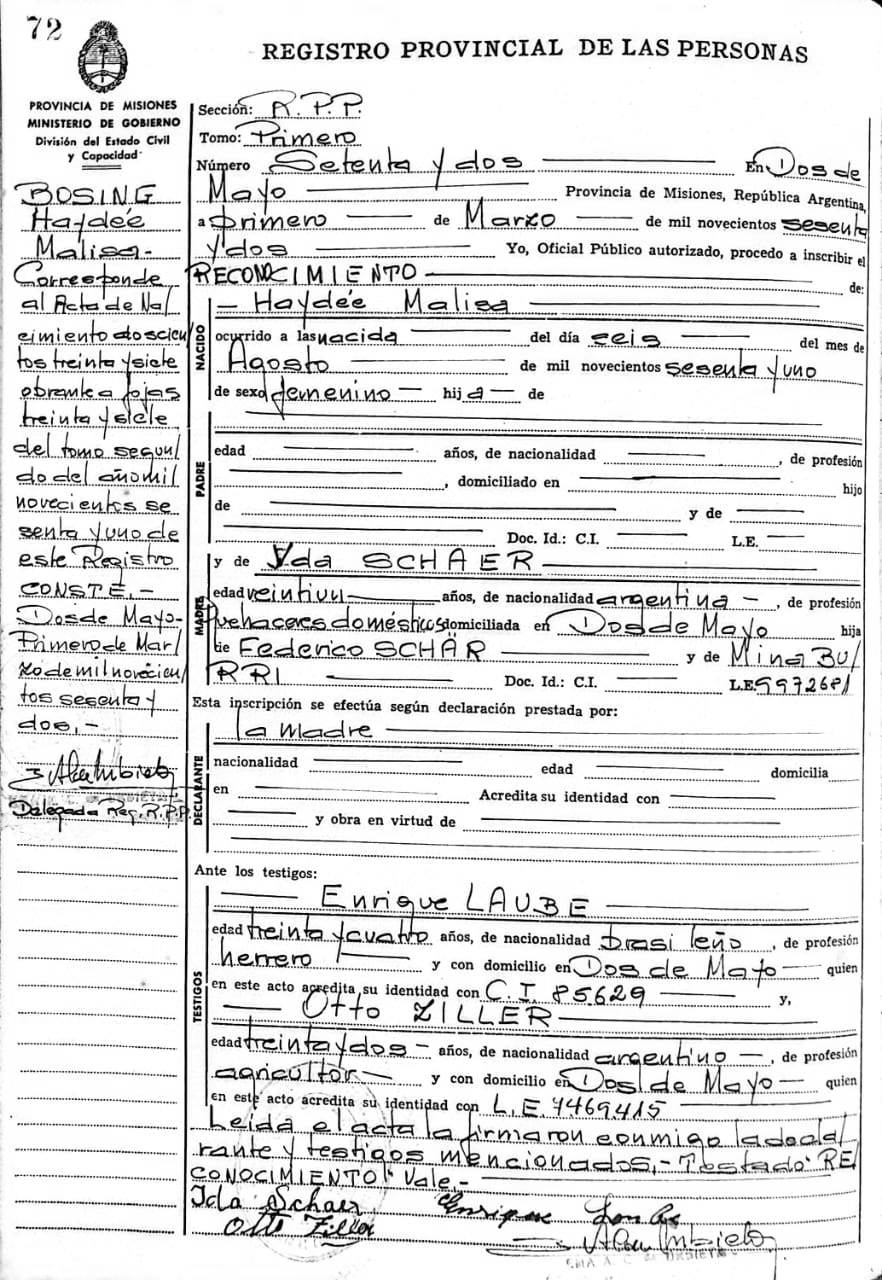 72
REGISTRO PROVINCIAL DE LAS PERSONAS
PROVINCIA DE MISIONES
MINISTERIO DE GOBIERNO
División del Estado Civil
y Capacidad
BOSING
Haydée
Malisa-
Corresponde
al Acta de Na/
cimiento doscien/
tos treinta y siete
obrante a fojas
treinta y siete
del tomo segun/
do del año mil
novecientos se
senta y uno de
este Registro
CONSTE.-
Dos de Mayo-
Primero de Mar/
zo de mil novecien/
tos sesenta y
dos,-
Delegada Reg. R.P.P.
Sección: R.P.P.
Tomo: Primero
Número Setenta y dos En Dos de
Mayo Provincia de Misiones, República Argentina,
a primero de Marzo de mil novecientos sesenta
y dos Yo, Oficial Público autorizado, procedo a inscribir el
RECONOCIMIENTO de:
NACIDO
Haydée Malisa
ocurrido a las nacida del día seis del mes de
Agosto de mil novecientos sesenta y uno
de sexo femenino hija de
PADRE
edad años, de nacionalidad , de profesión
, domiciliado en hijo
de y de
Doc. Id.: C.I. L.E.
MADRE
y de Yda SCHAER
edad veintiun años, de nacionalidad argentina , de profesión
Quehaceres domésticos domiciliada en Dos de Mayo hija
de Federico SCHÄR y de Mina BU/
RRI Doc. Id.: C.I. L.E. 9972681
Esta inscripción se efectúa según declaración prestada por:
la madre
DECLARANTE
nacionalidad edad domicilia
en Acredita su identidad con
y obra en virtud de
Ante los testigos:
TESTIGOS
Enrique LAUBE
edad treinta y cuatro años, de nacionalidad brasileño , de profesión
herrero y con domicilio en Dos de Mayo quien
en este acto acredita su identidad con C.I. 85629 y,
Otto ZILLER
edad treinta y dos años, de nacionalidad argentino , de profesión
agricultor y con domicilio en Dos de Mayo quien
en este acto acredita su identidad con L.E. 7469415
Leida el acta la firmaron conmigo la decla/
rante y testigos mencionados,- Testado: RE/
CONOCIMIENTO: Vale,-
Ida Schaer
Enrique Laube
Otto Ziller